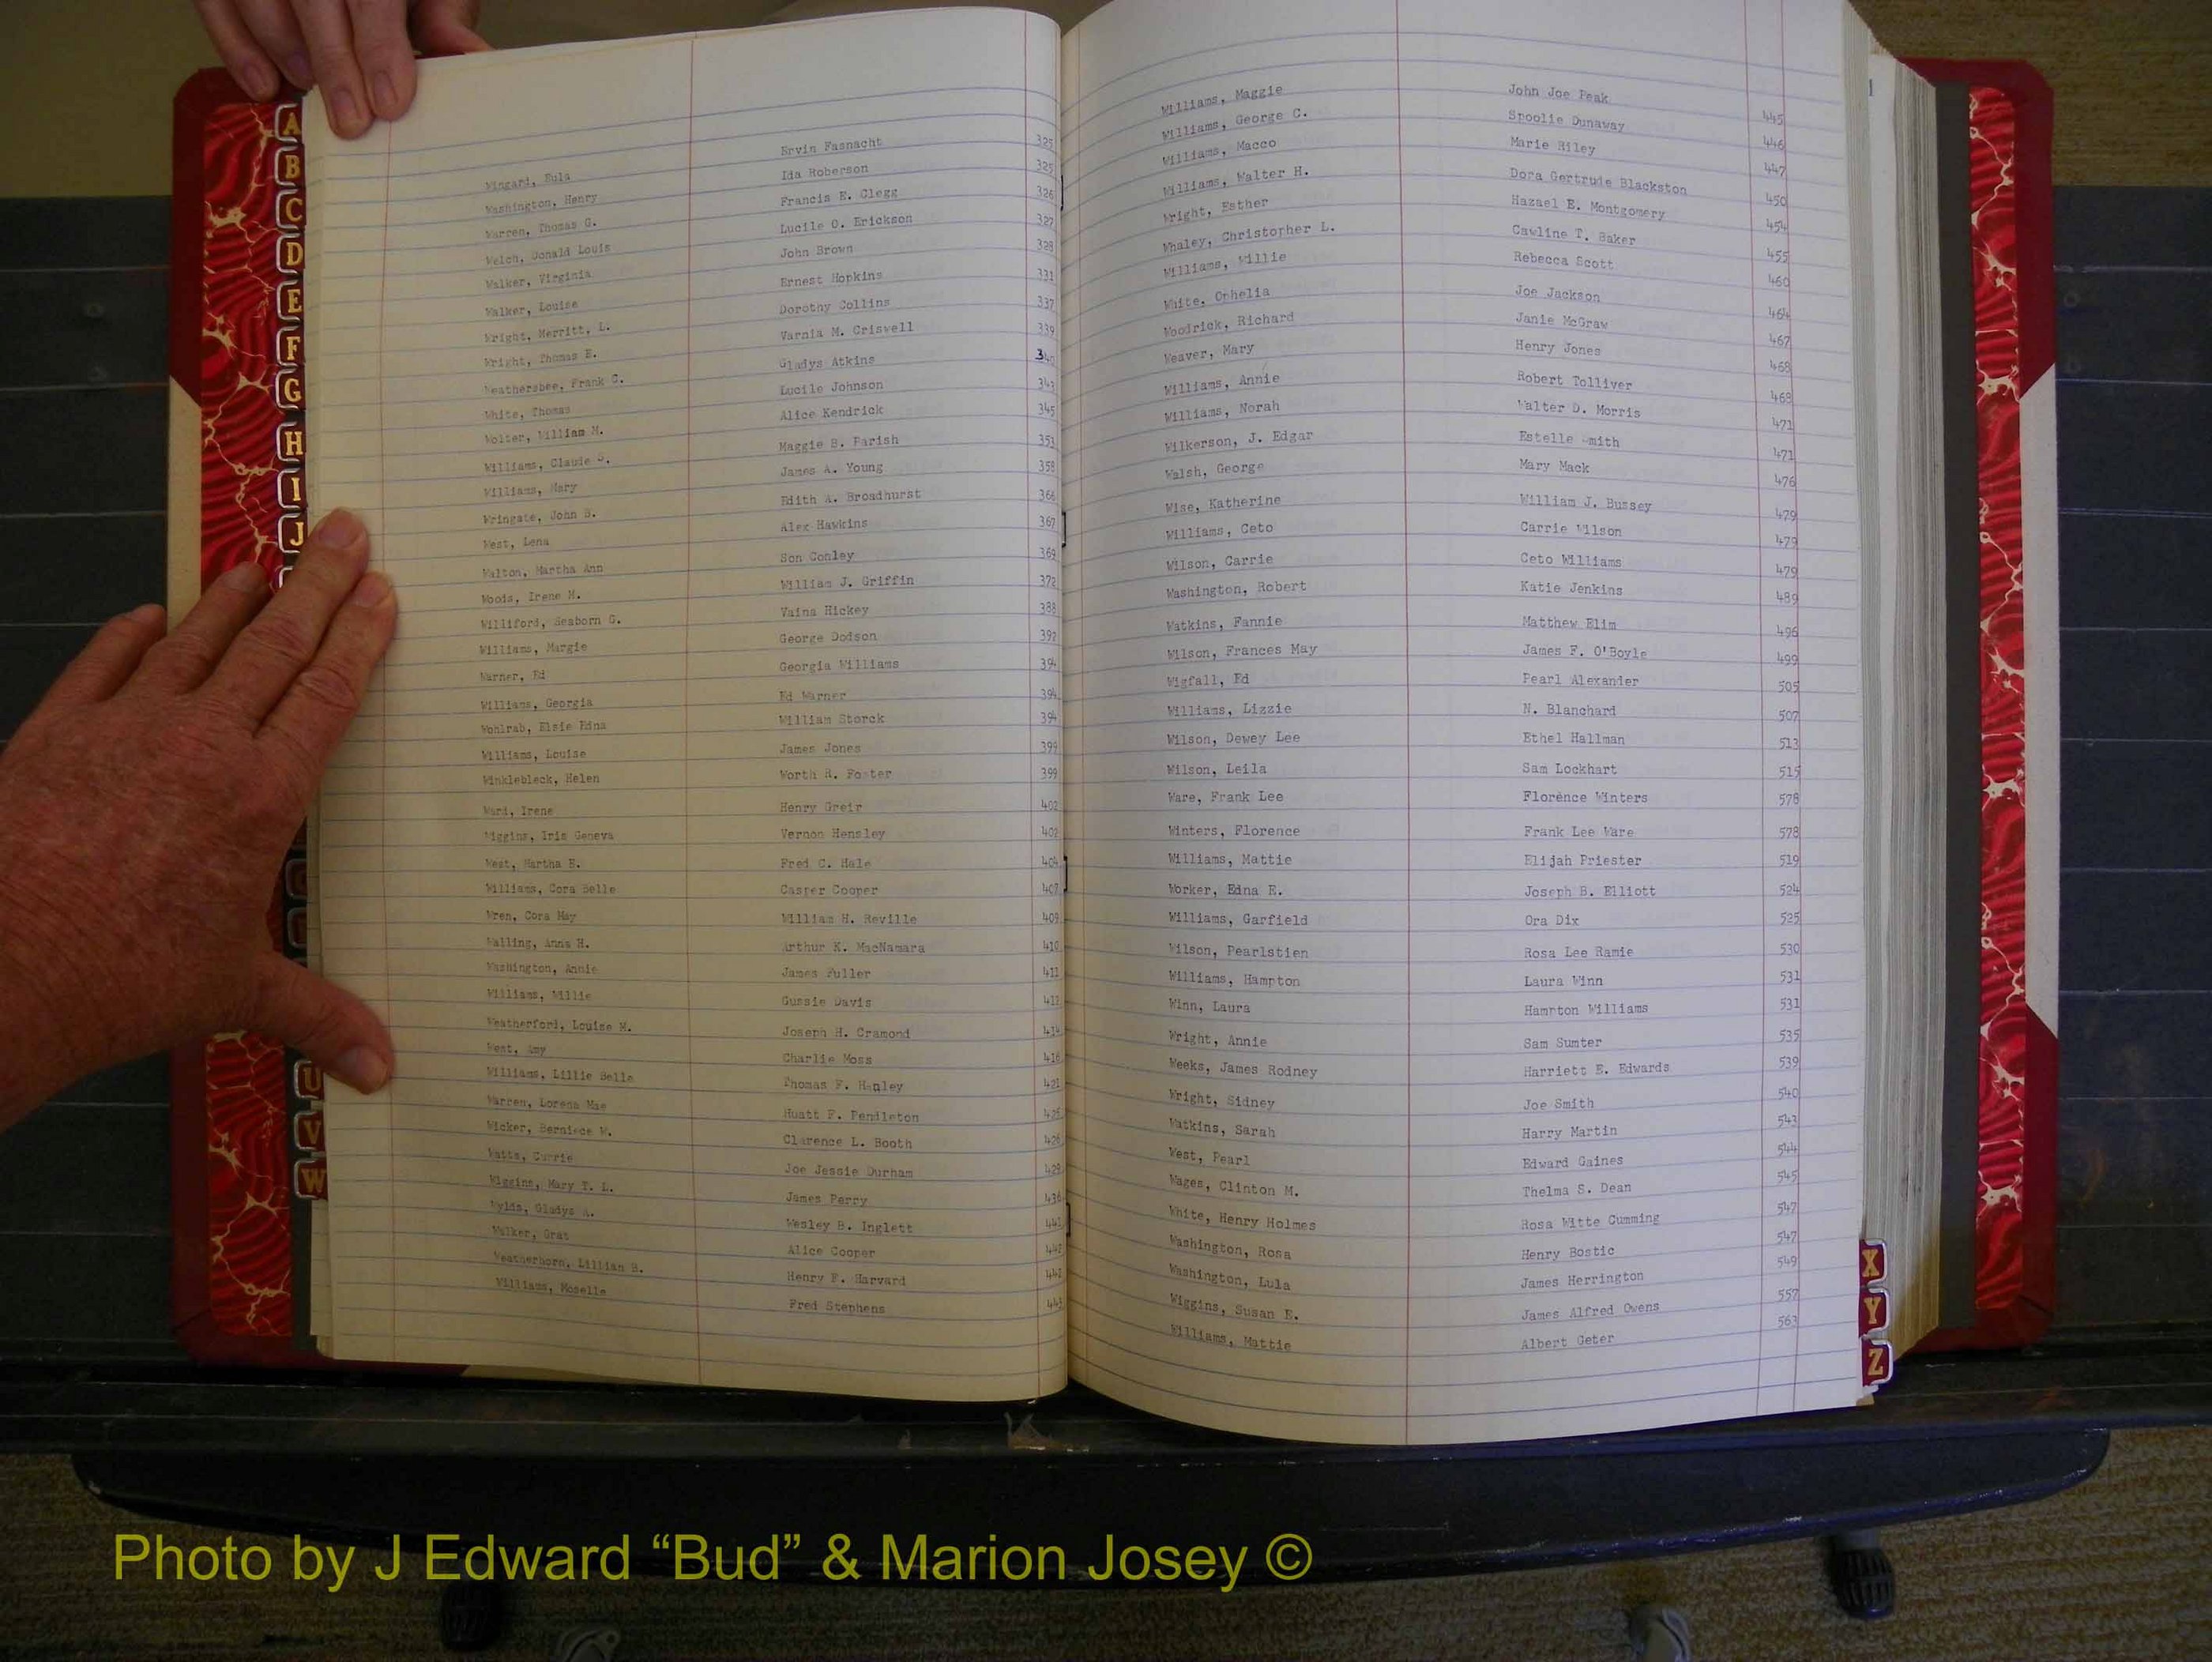 A
B
C
D
E
F
G
H
I
J
U
V
W
Wingard, Eula Ervin Fasnacht 325
Washington, Henry Ida Roberson 325
Warren, Thomas G. Francis E. Clegg 326
Welch, Donald Louis Lucile O. Erickson 327
Walker, Virginia John Brown 328
Walker, Louise Ernest Hopkins 331
Wright, Merritt, L. Dorothy Collins 337
Wright, Thomas E. Varnia M. Criswell 339
Weathersbee, Frank C. Gladys Atkins 340
White, Thomas Lucile Johnson 343
Wolter, William M. Alice Kendrick 345
Williams, Claude S. Maggie B. Parish 353
Williams, Mary James A. Young 358
Wringate, John S. Edith A. Broadhurst 366
West, Lena Alex Hawkins 367
Walton, Martha Ann Son Conley 369
Woods, Irene M. William J. Griffin 372
Williford, Seaborn G. Vaina Hickey 388
Williams, Margie George Dodson 392
Warner, Ed Georgia Williams 394
Williams, Georgia Ed Warner 394
Wohlrab, Elsie Edna William Storck 394
Williams, Louise James Jones 399
Winklebleck, Helen Worth R. Foster 399
Ward, Irene Henry Greir 402
Wiggins, Iris Geneva Vernon Hensley 402
West, Martha E. Fred C. Hale 404
Williams, Cora Belle Casper Cooper 407
Wren, Cora May William H. Reville 409
Walling, Anna H. Arthur K. MacNamara 410
Washington, Annie James Fuller 411
Williams, Willie Gussie Davis 412
Weatherford, Louise M. Joseph H. Cramond 414
West, Amy Charlie Moss 416
Williams, Lillie Belle Thomas F. Hanley 421
Warren, Lorena Mae Huatt F. Pendleton 425
Wicker, Berniece W. Clarence L. Booth 426
Watts, Currie Joe Jessie Durham 429
Wiggins, Mary T. L. James Perry 436
Wylds, Gladys A. Wesley B. Inglett 441
Walker, Grat Alice Cooper 442
Weatherhorn, Lillian B. Henry F. Harvard 442
Williams, Moselle Fred Stephens 443
Williams, Maggie John Joe Peak 445
Williams, George C. Spoolie Dunaway 446
Williams, Macco Marie Riley 447
Williams, Walter H. Dora Gertrude Blackston 450
Wright, Esther Hazael E. Montgomery 454
Whaley, Christopher L. Cawline T. Baker 455
Williams, Willie Rebecca Scott 460
White, Ophelia Joe Jackson 464
Woodrick, Richard Janie McGraw 467
Weaver, Mary Henry Jones 468
Williams, Annie Robert Tolliver 468
Williams, Norah Walter D. Morris 471
Wilkerson, J. Edgar Estelle Smith 471
Walsh, George Mary Mack 476
Wise, Katherine William J. Bussey 479
Williams, Ceto Carrie Wilson 479
Wilson, Carrie Ceto Williams 479
Washington, Robert Katie Jenkins 489
Watkins, Fannie Matthew Elim 496
Wilson, Frances May James F. O'Boyle 499
Wigfall, Ed Pearl Alexander 505
Williams, Lizzie N. Blanchard 507
Wilson, Dewey Lee Ethel Hallman 513
Wilson, Leila Sam Lockhart 515
Ware, Frank Lee Florence Winters 578
Winters, Florence Frank Lee Ware 578
Williams, Mattie Elijah Priester 519
Worker, Edna E. Joseph B. Elliott 524
Williams, Garfield Ora Dix 525
Wilson, Pearlstien Rosa Lee Ramie 530
Williams, Hampton Laura Winn 531
Winn, Laura Hampton Williams 531
Wright, Annie Sam Sumter 535
Weeks, James Rodney Harriett E. Edwards 539
Wright, Sidney Joe Smith 540
Watkins, Sarah Harry Martin 543
West, Pearl Edward Gaines 544
Wages, Clinton M. Thelma S. Dean 545
White, Henry Holmes Rosa Witte Cumming 547
Washington, Rosa Henry Bostic 547
Washington, Lula James Herrington 549
Wiggins, Susan E. James Alfred Owens 557
Williams, Mattie Albert Geter 563
X
Y
Z
Photo by J Edward “Bud” & Marion Josey ©